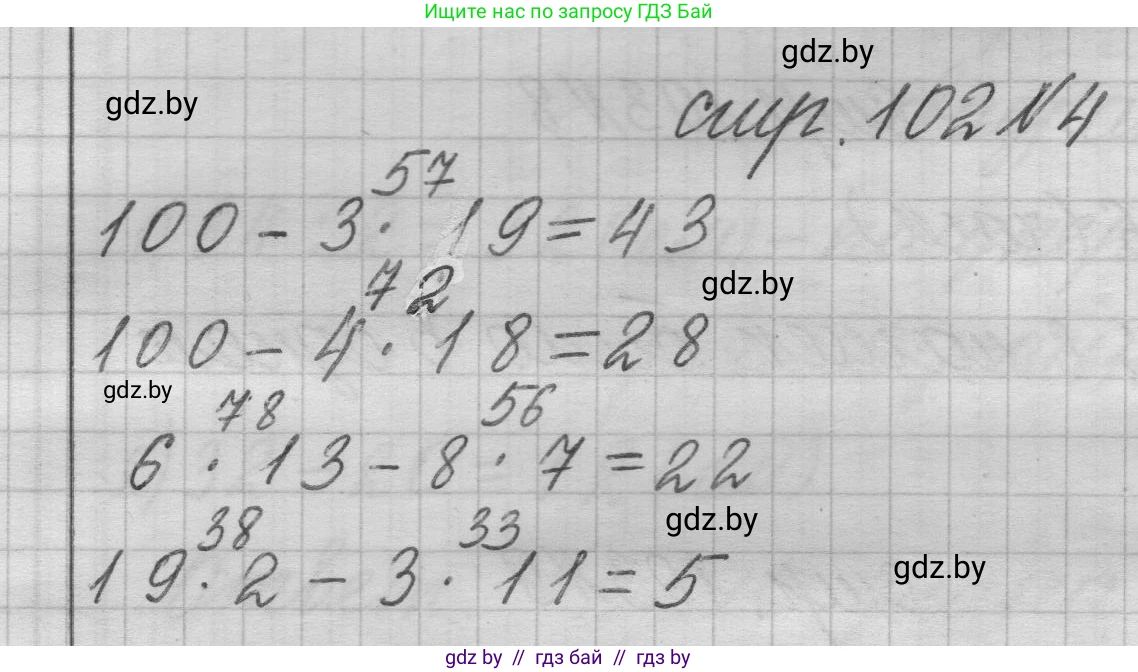 Ищите нас по запросу ГДЗ Бай
gdz.by
gdz.by
стр. 102 №4
57
100 - 3 · 19 = 43
72
gdz.by
100 - 4 · 18 = 28
gdz.by
78 56
6 · 13 - 8 · 7 = 22
38 33
gdz.by
19 · 2 - 3 · 11 = 5
gdz.by
gdz by // гдз бай // гдз by